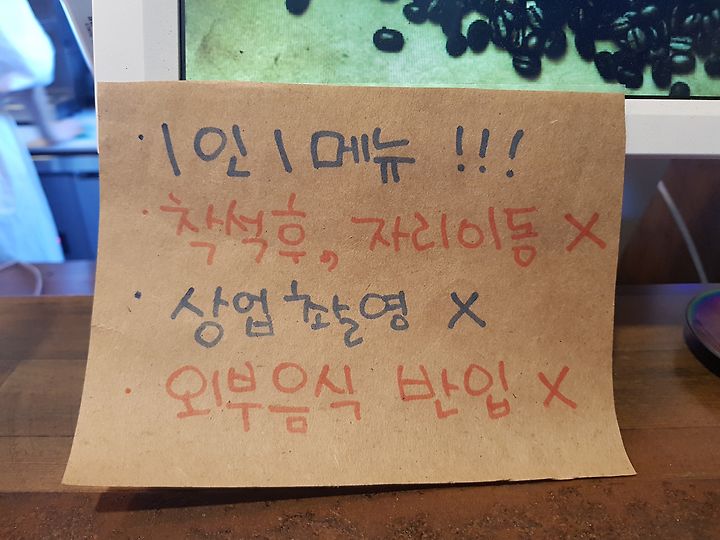 · 1인 1메뉴 !!!
· 착석후, 자리이동 X
· 상업촬영 X
· 외부음식 반입 X